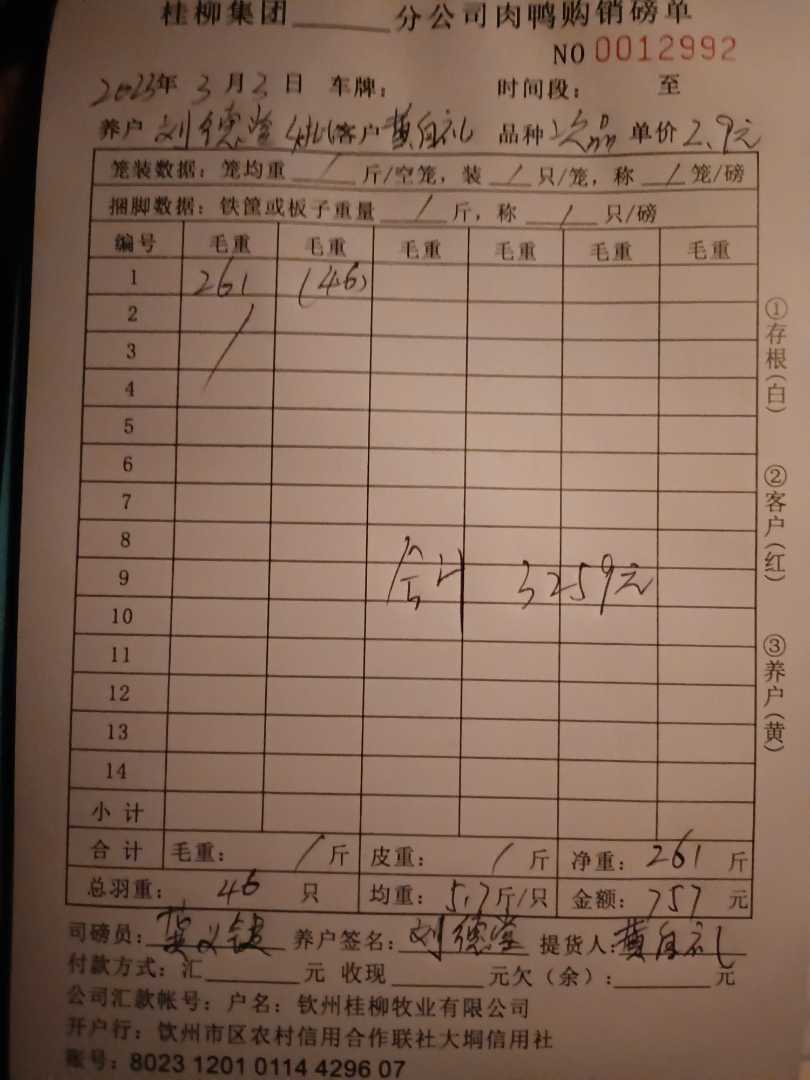 桂柳集团______分公司肉鸭购销磅单
NO 0012992
2023年 3月2日 车牌： 时间段： 至
养户 刘德堂 客户 黄自礼 品种 次品 单价 2.9元
笼装数据：笼均重 / 斤/空笼，装 / 只/笼，称 / 笼/磅
捆脚数据：铁筐或板子重量 / 斤，称 / 只/磅
编号 毛重 毛重 毛重 毛重 毛重 毛重
1 261 (46)
2 /
3
4
5
6
7
8
9 合计 3259元
10
11
12
13
14
小 计
合 计 毛重： / 斤 皮重： / 斤 净重：261 斤
总羽重： 46 只 均重：5.7斤/只 金额：757 元
司磅员： 养户签名：刘德堂 提货人：黄自礼
付款方式：汇______元 收现______元欠（余）：______元
公司汇款帐号：户名：钦州桂柳牧业有限公司
开户行：钦州市区农村信用合作联社大垌信用社
账号：8023 1201 0114 4296 07
①存根（白）
②客户（红）
③养户（黄）